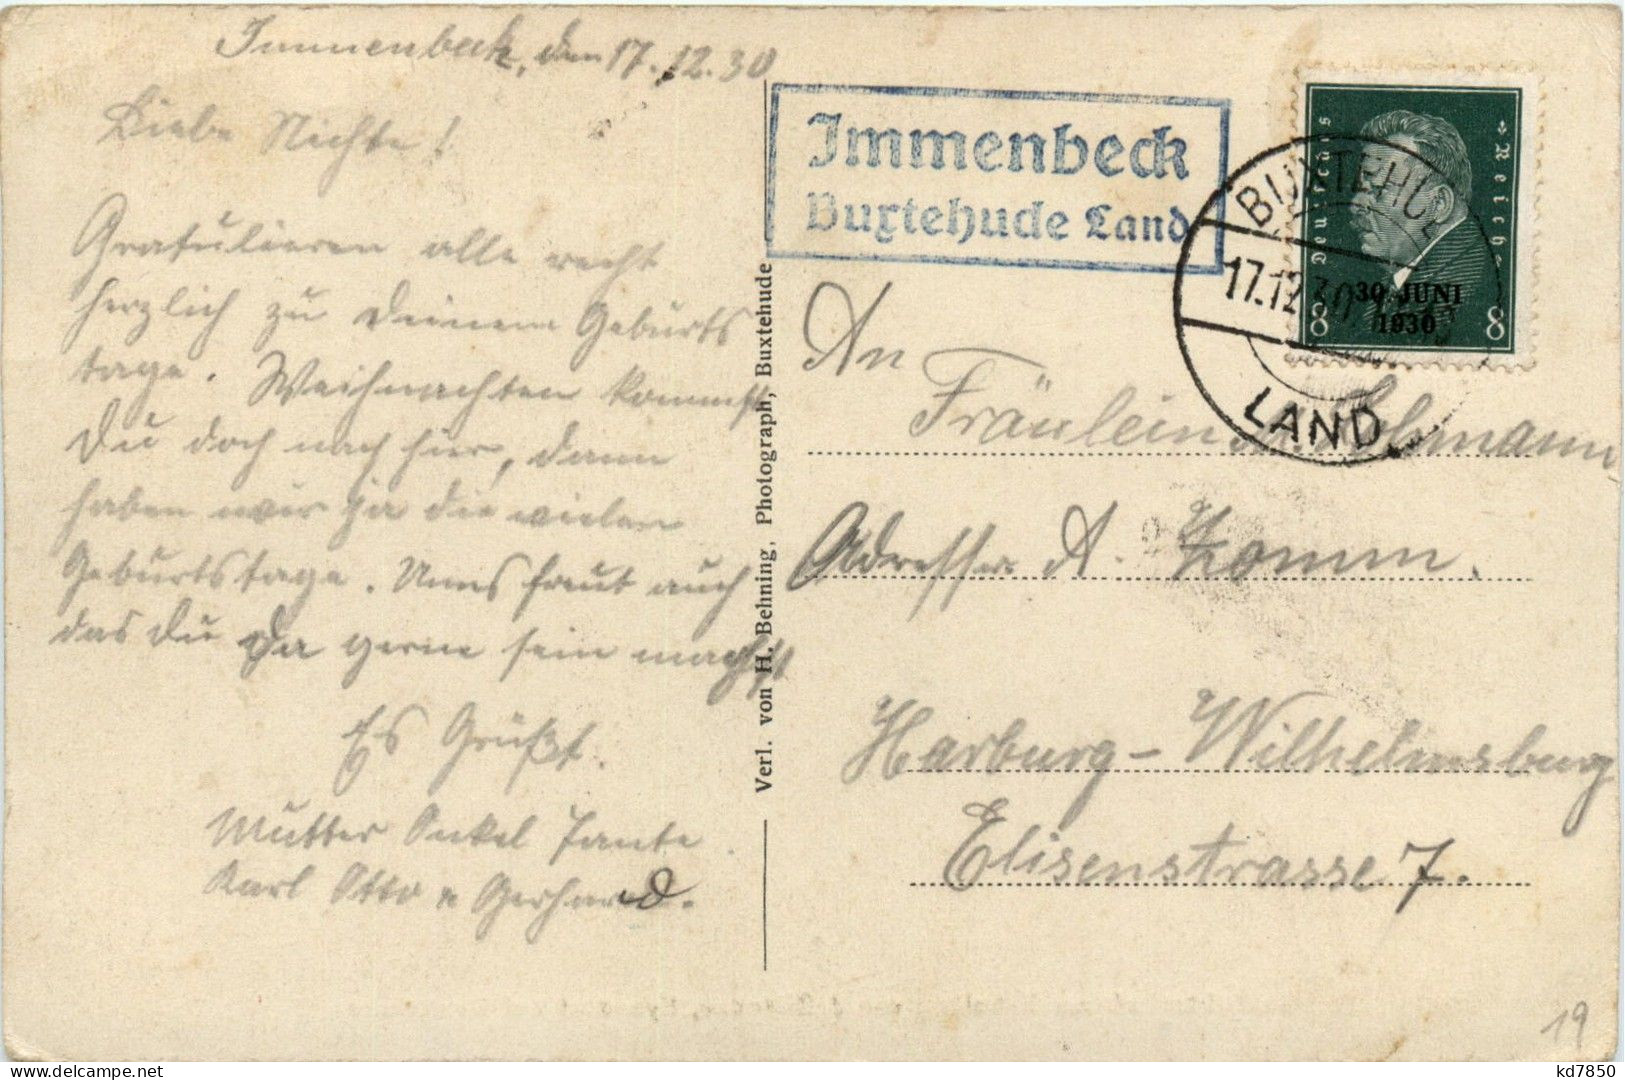 Immenbeck, den 17.12.30
Liebe Nichte!
Gratulieren alle recht
herzlich zu Deinem Geburts
tage. Weihnachten kommst
Du doch nach hier, dann
haben wir ja die vielen
Geburtstage. Uns freut auch
das Du Da gerne sein magst
Es Grüßt.
Mutter Onkel Tante.
Karl Otto u Gerhard.
Verl. von H. Behning, Photograph, Buxtehude
Immenbeck
Buxtehude Land
BUXTEHUDE
17.12.30
LAND
Deutsches Reich
30. JUNI
1930
8 8
An
Fräulein Lohmann
Adresse A.
Harburg-Wilhelmsburg
Elisenstrasse 7.
19
kd7850